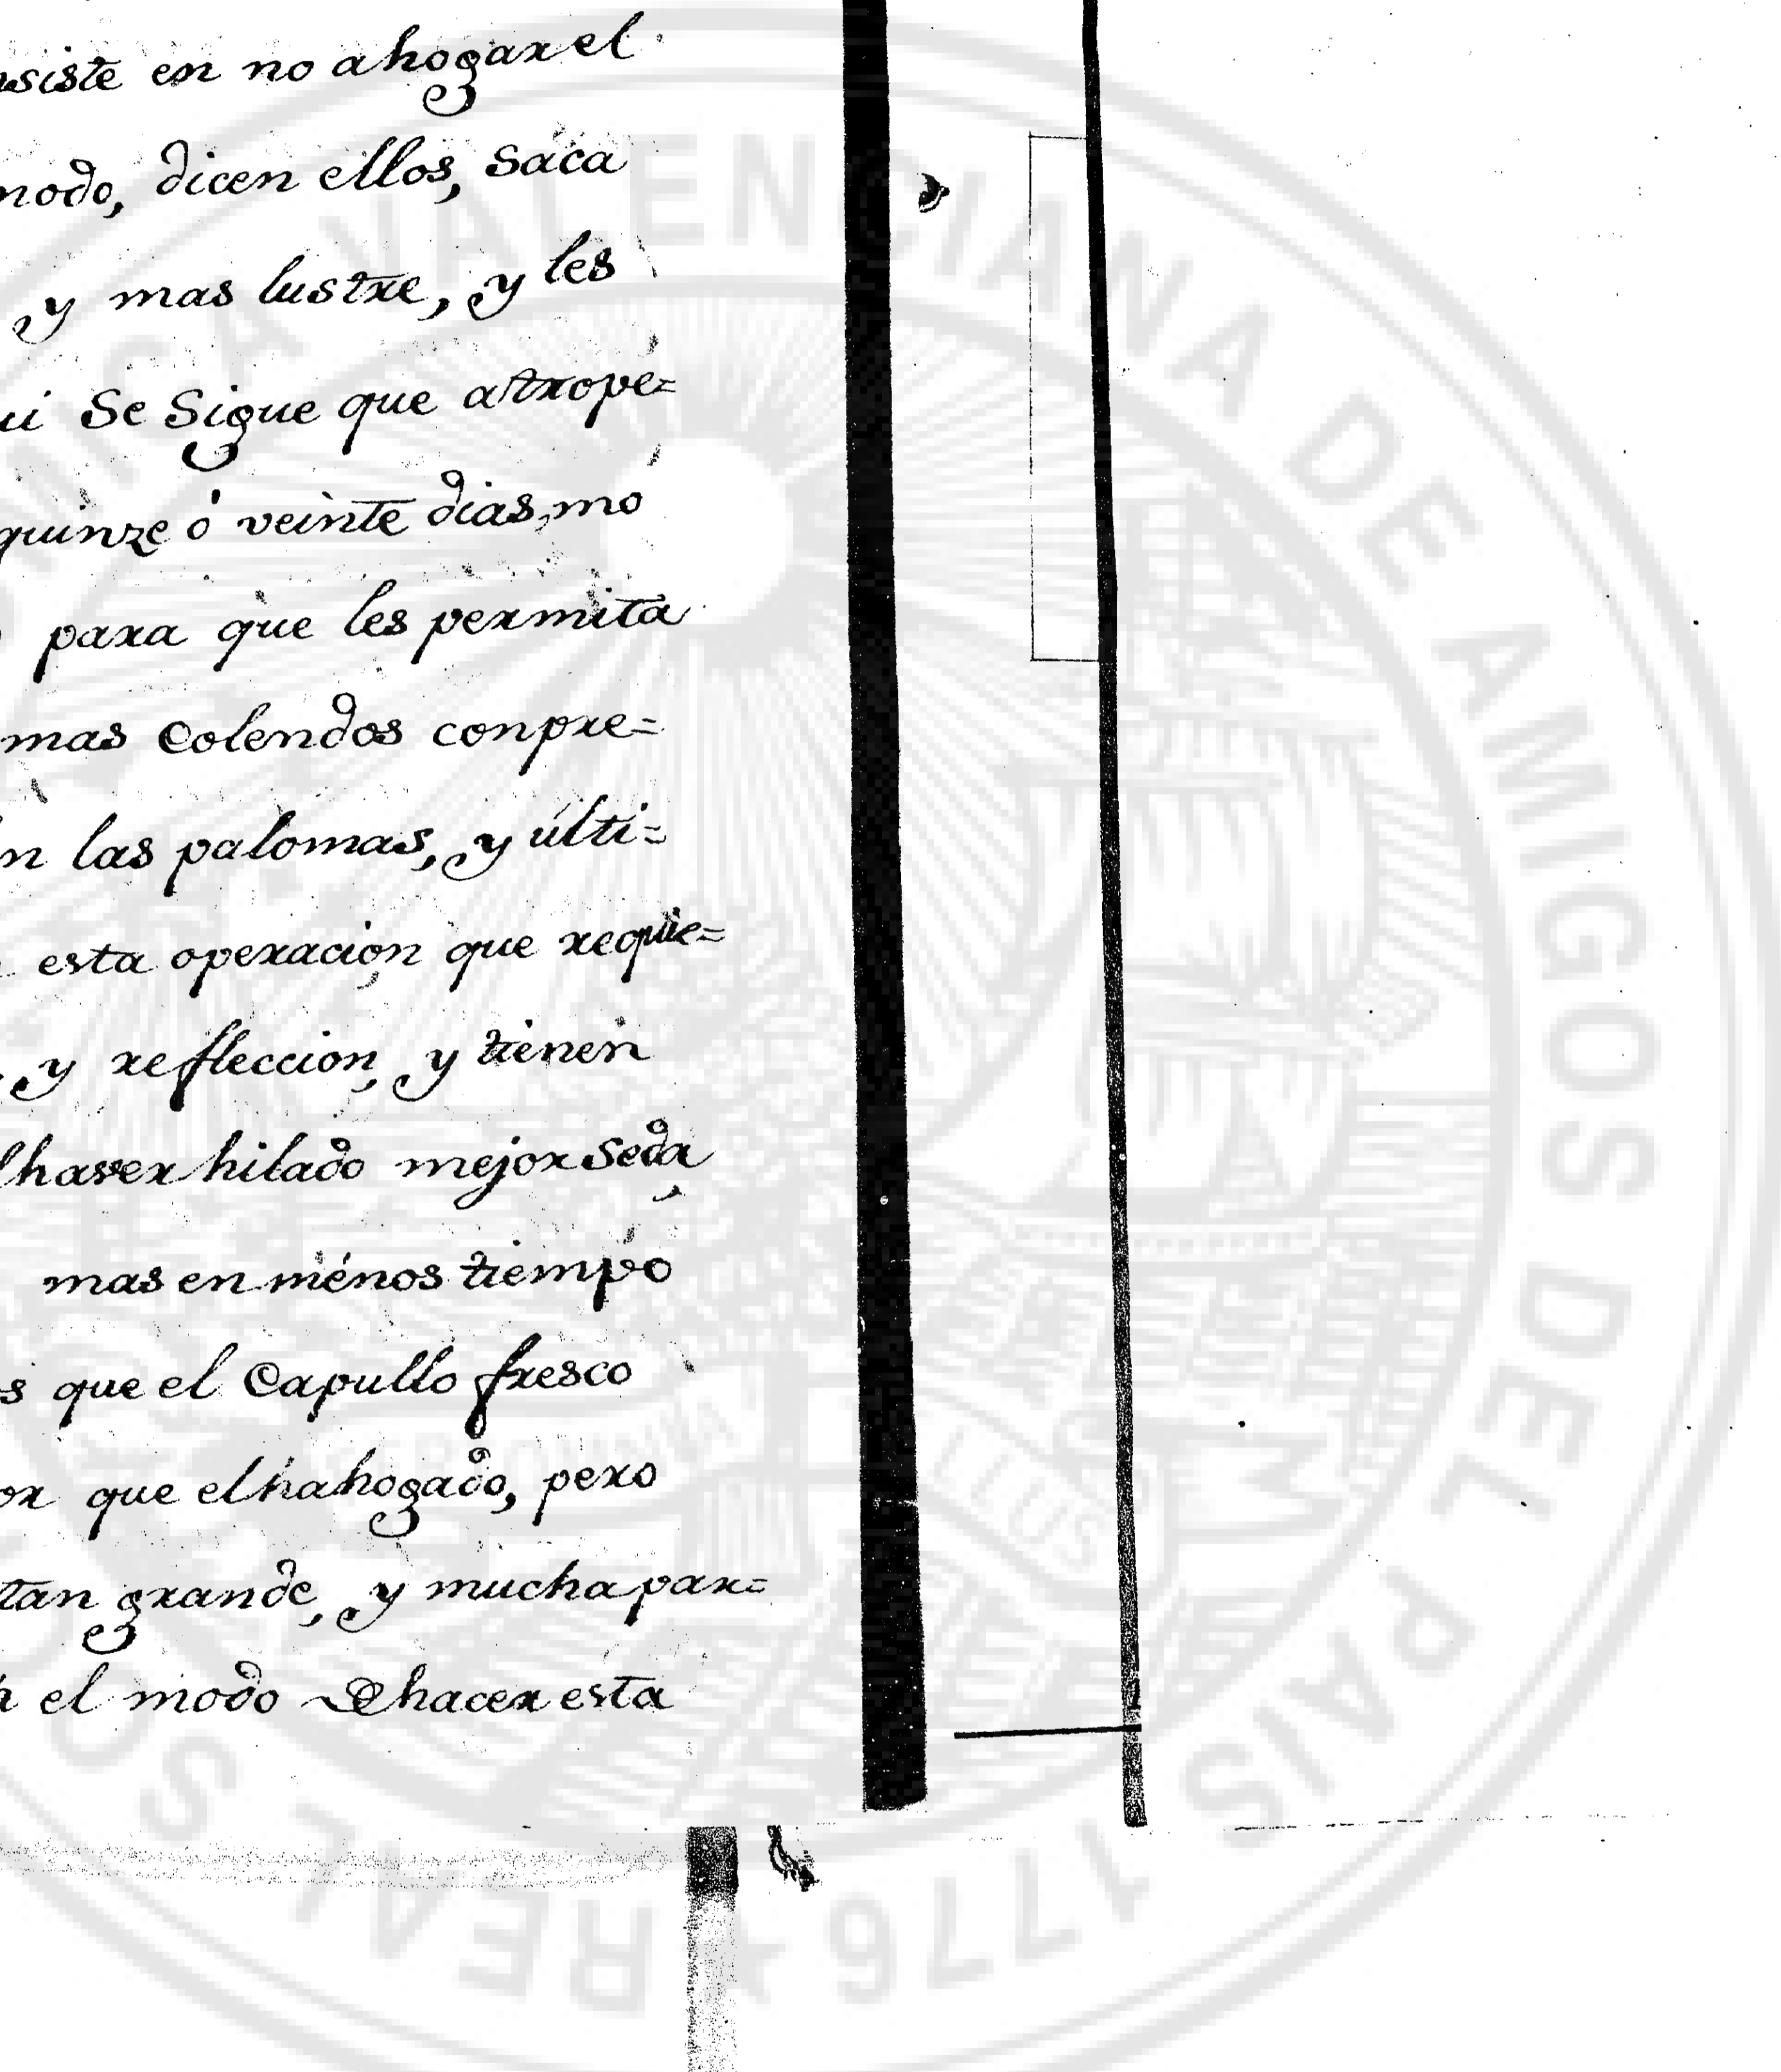 nsiste en no ahogar el
modo, dicen ellos, saca
y mas lustre, y les
ui se sigue que atrope=
quinze ó veinte dias, mo
para que les permita
mas Colendos conpre=
n las palomas, y ulti=
esta operacion que requie=
y refleccion, y tienen
l haver hilado mejor seda
mas en ménos tiempo
s que el Capullo fresco
or que el hahogado, pero
tan grande, y mucha par=
el modo de hacer esta
VALENCIANA DE AMIGOS DEL PAIS
1776 ★ REAL S